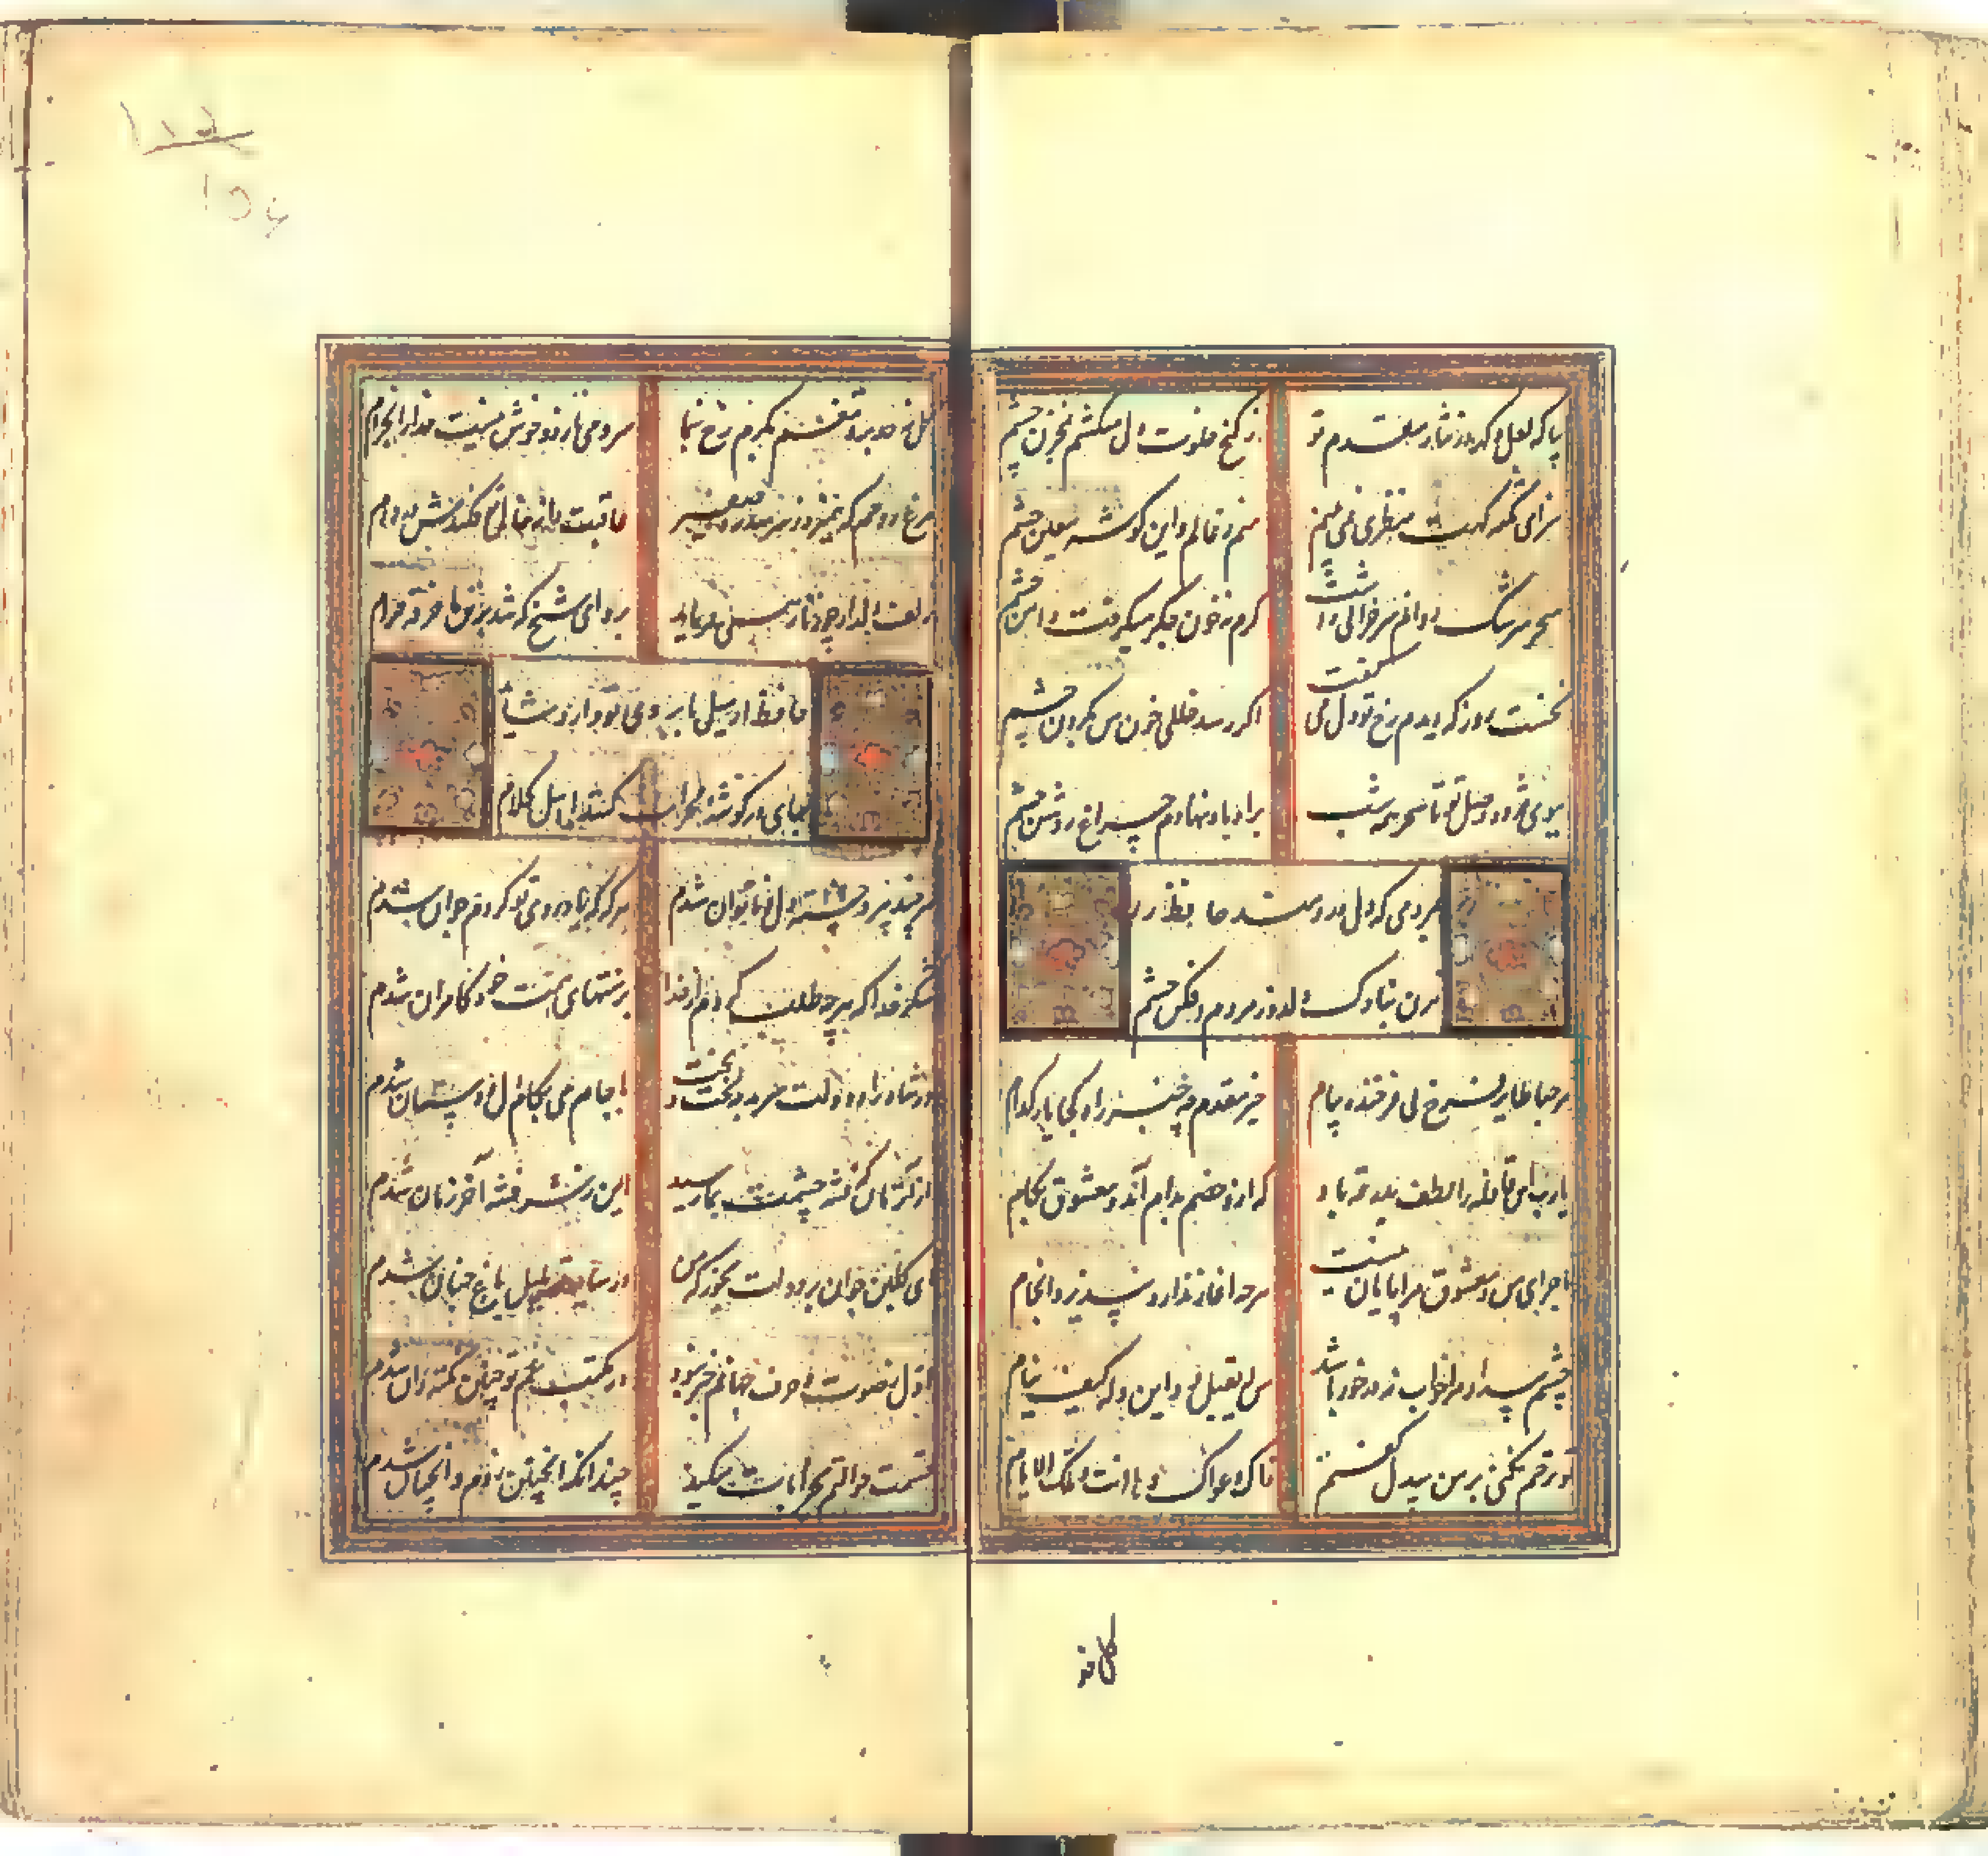 بیا که لعل و گهر در نثار مقدم تو ز کنج خلوت دل میکشم بخزن چشم
سزای تکیه گهت منظری نمی بینم منم ز عالم و این گوشه معین چشم
سحر سرشک روانم سر خرابی داشت گرم نه خون جگر میگرفت دامن چشم
نخست روز که دیدم رخ تو دل می گفت اگر رسد خللی خون من بگردن چشم
ببوی مژده وصل تو تا سحر همه شب براه باد نهادم چراغ روشن چشم
بمردمی که دل دردمند حافظ را
مزن بناوک دلدوز مردم افکن چشم
مرحبا طایر فرخ پی فرخنده پیام خیر مقدم چه خبر راه کجا یار کدام
یارب این قافله را لطف بدرقه باد که ازو خصم بدام آمد و معشوق بکام
ماجرای من و معشوق مرا پایان نیست هر چه آغاز ندارد نپذیرد انجام
چشم مرا خواب نه در خور باشد من له یقتل داء دنف کیف ینام
تو ترحم نکنی بر من بیدل گفتم ذاک دعوای و ها انت و تلک الایام
گل ز حد برد تنعم بکرم رخ بنما سرو می نازد و خوش نیست خدا را بخرام
مرغ روحم که همیزد ز سر سدره صفیر عاقبت دانه خال تو فکندش در دام
زلف دلدار چو زنار همی فرماید برو ای شیخ که شد بر تن ما خرقه حرام
حافظ ار میل بابروی تو دارد شاید
جای در گوشه محراب کنند اهل کلام
هر چند پیر و خسته دل و ناتوان شدم هر گه که یاد روی تو کردم جوان شدم
شکر خدا که هر چه طلب کردم از خدا بر منتهای همت خود کامران شدم
در شاهراه دولت سرمد بتخت بخت با جام می بکام دل دوستان شدم
از آن زمان که فتنه چشمت بمن رسید ایمن ز شر فتنه آخر زمان شدم
ای گلبن جوان بر دولت بخور که من در سایه تو بلبل باغ جنان شدم
اول ز صوت و حرف جهانم خبر نبود در مکتب غم تو چنین نکته دان شدم
قسمت حوالتم بخرابات میکند چندانکه اینچنین زدم و آنچنان شدم
گل ز